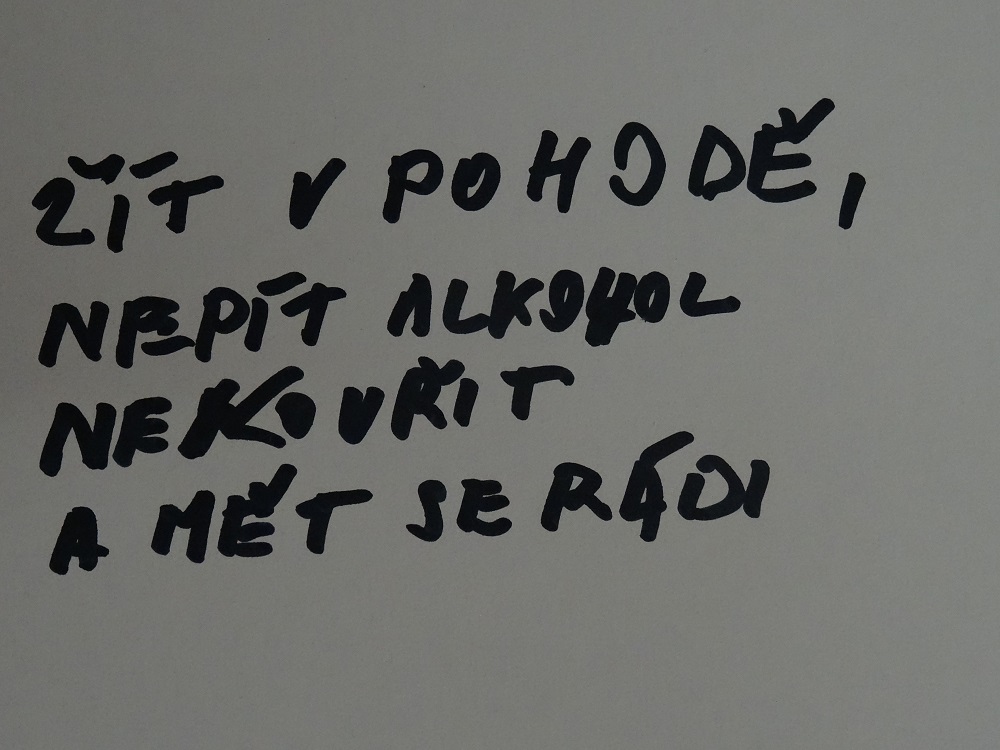 ŽÍT V POHODĚ,
NEPÍT ALKOHOL
NEKOUŘIT
A MĚT SE RÁDI